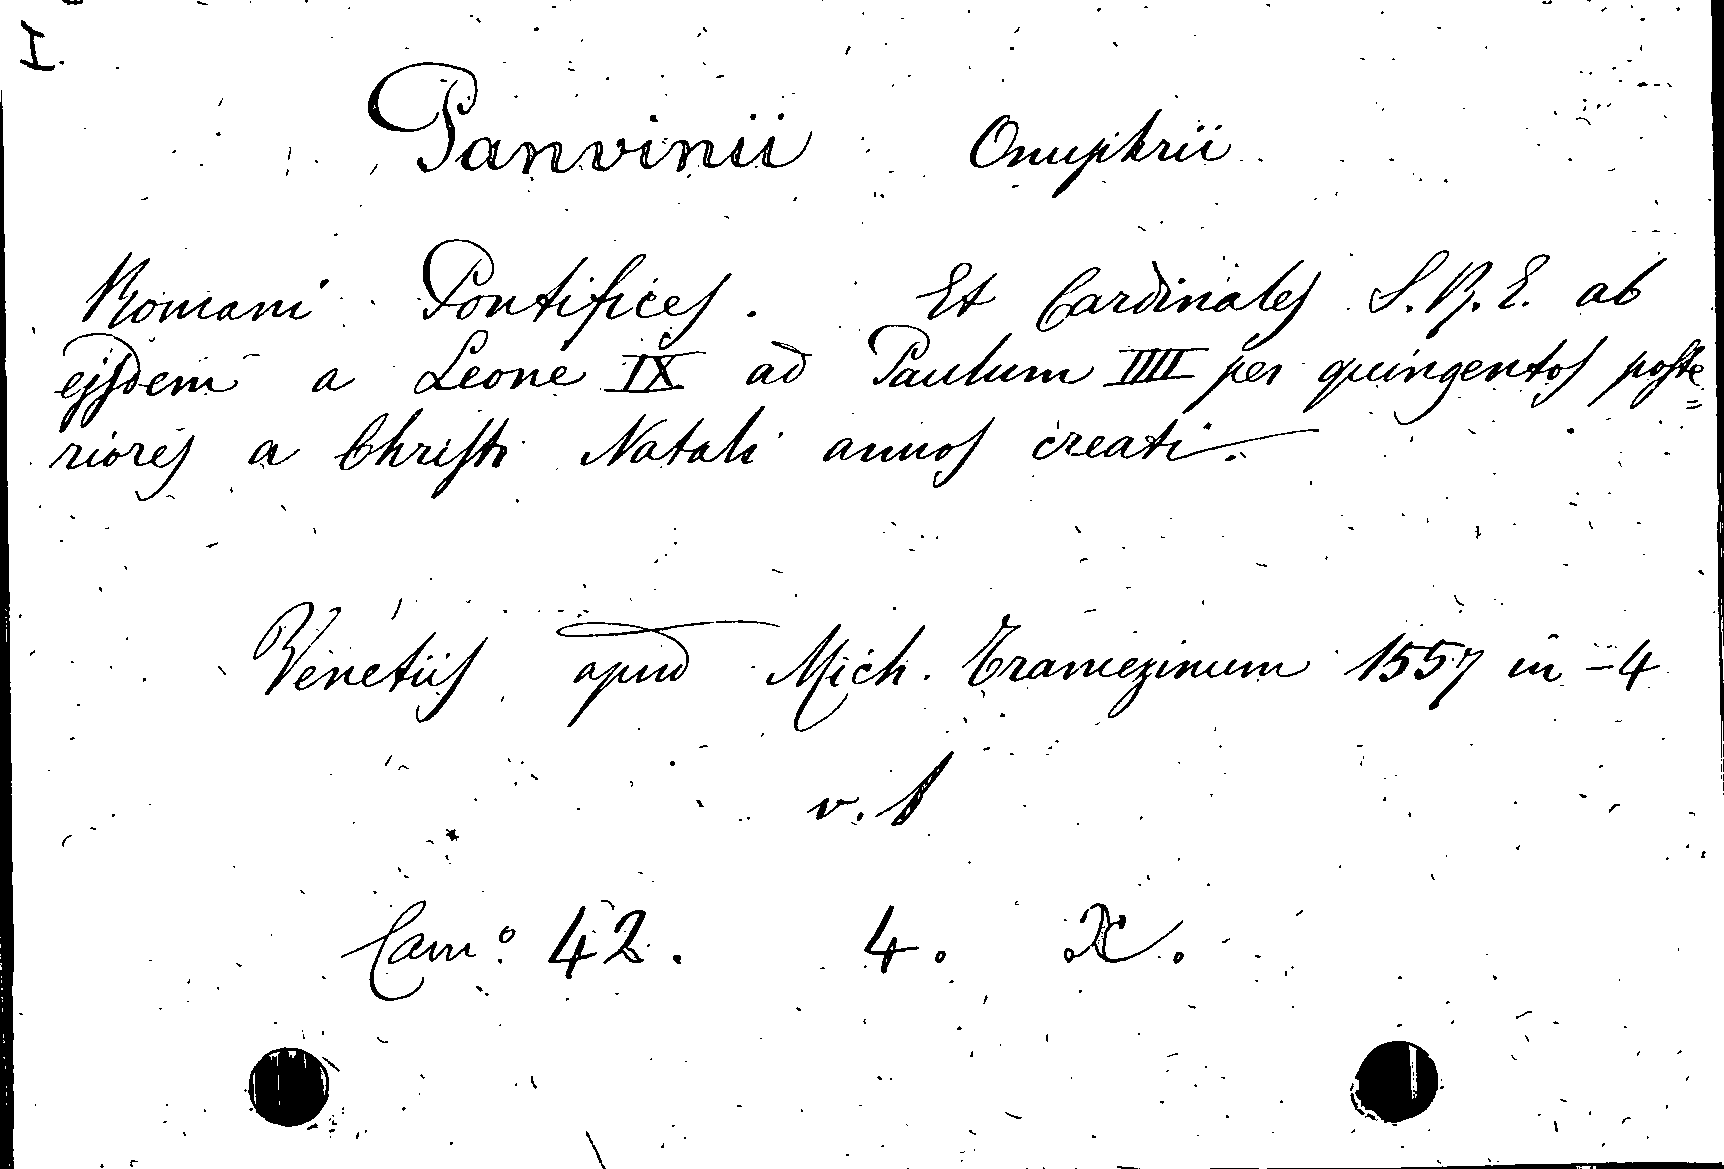 I.
Panvinii Onuphrii
Romani Pontifices. Et Cardinales S.R.E. ab
ejsdem a Leone IX ad Paulum IIII per quingentos poste=
riores a Christi Natali annos creati.
Venetiis apud Mich. Tramezinum 1557 in-4
v. 1
Cam.º 42. 4. X.